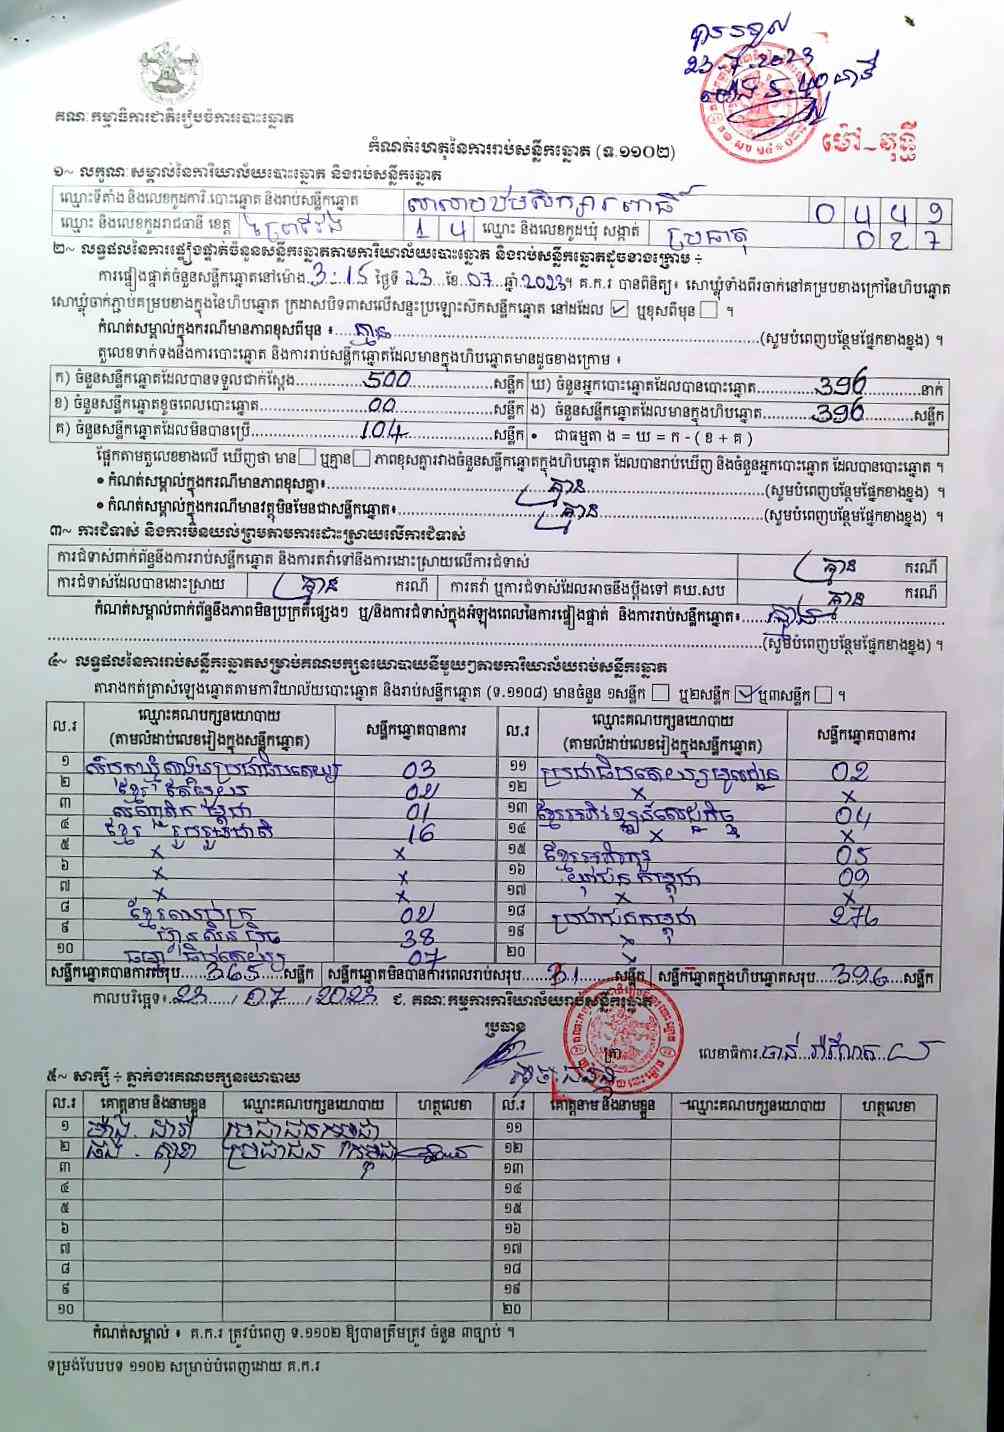 បានទទួល
23-7-2023
ម៉ោង 5:40 នាទី
គណៈកម្មាធិការជាតិរៀបចំការបោះឆ្នោត
ម៉ៅ-ភុទ្ធី
កំណត់ហេតុនៃការរាប់សន្លឹកឆ្នោត (ទ.១១០២)
១~ លក្ខណៈសម្គាល់នៃការិយាល័យបោះឆ្នោត និងរាប់សន្លឹកឆ្នោត
ឈ្មោះទីតាំង និងលេខកូដការិ.បោះឆ្នោត និងរាប់សន្លឹកឆ្នោត សាលាបឋមសិក្សា 0 4 4 9
ឈ្មោះ និងលេខកូដរាជធានី ខេត្ត ព្រៃវែង 1 4 ឈ្មោះ និងលេខកូដឃុំ សង្កាត់ ប្រធាតុ 0 2 7
២~ លទ្ធផលនៃការផ្ទៀងផ្ទាត់ចំនួនសន្លឹកឆ្នោតតាមការិយាល័យបោះឆ្នោត និងរាប់សន្លឹកឆ្នោតដូចខាងក្រោម ÷
ការផ្ទៀងផ្ទាត់ចំនួនសន្លឹកឆ្នោតនៅម៉ោង 3:15 ថ្ងៃទី 23 ខែ 07 ឆ្នាំ 2023។ គ.ក.រ បានពិនិត្យ៖ សោឃ្លុំទាំងពីរចាក់នៅគម្របខាងក្រៅនៃហិបឆ្នោត
សោឃ្លុំចាក់ភ្ជាប់គម្របខាងក្នុងនៃហិបឆ្នោត ក្រដាសបិទពាសលើសន្ទះប្រឡោះសិកសន្លឹកឆ្នោត នៅដដែល ☑ ឬខុសពីមុន ☐ ។
កំណត់សម្គាល់ក្នុងករណីមានភាពខុសពីមុន ៖ គ្មាន (សូមបំពេញបន្ថែមផ្នែកខាងខ្នង) ។
តួលេខទាក់ទងនឹងការបោះឆ្នោត និងការរាប់សន្លឹកឆ្នោតដែលមានក្នុងហិបឆ្នោតមានដូចខាងក្រោម ៖
ក) ចំនួនសន្លឹកឆ្នោតដែលបានទទួលជាក់ស្តែង 500 សន្លឹក ឃ) ចំនួនអ្នកបោះឆ្នោតដែលបានបោះឆ្នោត 396 នាក់
ខ) ចំនួនសន្លឹកឆ្នោតខូចពេលបោះឆ្នោត 00 សន្លឹក ង) ចំនួនសន្លឹកឆ្នោតដែលមានក្នុងហិបឆ្នោត 396 សន្លឹក
គ) ចំនួនសន្លឹកឆ្នោតដែលមិនបានប្រើ 104 សន្លឹក • ជាធម្មតា ង = ឃ = ក - ( ខ + គ )
ផ្អែកតាមតួលេខខាងលើ ឃើញថា មាន ☐ ឬគ្មាន ☐ ភាពខុសគ្នារវាងចំនួនសន្លឹកឆ្នោតក្នុងហិបឆ្នោត ដែលបានរាប់ឃើញ និងចំនួនអ្នកបោះឆ្នោត ដែលបានបោះឆ្នោត ។
• កំណត់សម្គាល់ក្នុងករណីមានភាពខុសគ្នា៖ គ្មាន (សូមបំពេញបន្ថែមផ្នែកខាងខ្នង) ។
• កំណត់សម្គាល់ក្នុងករណីមានវត្ថុមិនមែនជាសន្លឹកឆ្នោត៖ គ្មាន (សូមបំពេញបន្ថែមផ្នែកខាងខ្នង) ។
៣~ ការជំទាស់ និងការមិនយល់ព្រមតាមការដោះស្រាយលើការជំទាស់
ការជំទាស់ពាក់ព័ន្ធនឹងការរាប់សន្លឹកឆ្នោត និងការតវ៉ាទៅនឹងការដោះស្រាយលើការជំទាស់ គ្មាន ករណី
ការជំទាស់ដែលបានដោះស្រាយ គ្មាន ករណី ការតវ៉ា ឬការជំទាស់ដែលអាចនឹងប្តឹងទៅ គឃ.សប គ្មាន ករណី
កំណត់សម្គាល់ពាក់ព័ន្ធនឹងភាពមិនប្រក្រតីផ្សេងៗ ឬ/និងការជំទាស់ក្នុងអំឡុងពេលនៃការផ្ទៀងផ្ទាត់ និងការរាប់សន្លឹកឆ្នោត៖ គ្មាន
(សូមបំពេញបន្ថែមផ្នែកខាងខ្នង) ។
៤~ លទ្ធផលនៃការរាប់សន្លឹកឆ្នោតសម្រាប់គណបក្សនយោបាយនីមួយៗតាមការិយាល័យរាប់សន្លឹកឆ្នោត
តារាងកត់ត្រាសំឡេងឆ្នោតតាមការិយាល័យបោះឆ្នោត និងរាប់សន្លឹកឆ្នោត (ទ.១១០៨) មានចំនួន ១សន្លឹក ☐ ឬ២សន្លឹក ☑ ឬ៣សន្លឹក ☐ ។
ល.រ ឈ្មោះគណបក្សនយោបាយ (តាមលំដាប់លេខរៀងក្នុងសន្លឹកឆ្នោត) សន្លឹកឆ្នោតបានការ ល.រ ឈ្មោះគណបក្សនយោបាយ (តាមលំដាប់លេខរៀងក្នុងសន្លឹកឆ្នោត) សន្លឹកឆ្នោតបានការ
១ សំបុកឃ្មុំសង្គមប្រជាធិបតេយ្យ 03 ១១ ប្រជាធិបតេយ្យមូលដ្ឋាន 02
២ ខ្មែរ 02 ១២ x x
៣ កម្ពុជា 01 ១៣ ខ្មែរអភិវឌ្ឍន៍សេដ្ឋកិច្ច 04
៤ ខ្មែរ រួបរួមជាតិ 16 ១៤ x x
៥ x x ១៥ ខ្មែរ 05
៦ x ១៦ កម្ពុជា 09
៧ x x ១៧ x x
៨ ខ្មែរ 02 ១៨ ប្រជាជនកម្ពុជា 276
៩ ហ្វ៊ុនស៊ិនប៉ិច 38 ១៩
១០ 07 ២០ x
សន្លឹកឆ្នោតបានការសរុប 365 សន្លឹក សន្លឹកឆ្នោតមិនបានការពេលរាប់សរុប 31 សន្លឹក សន្លឹកឆ្នោតក្នុងហិបឆ្នោតសរុប 396 សន្លឹក
កាលបរិច្ឆេទ៖ 23 / 07 / 2023 ជ. គណៈកម្មការការិយាល័យរាប់សន្លឹកឆ្នោត
ប្រធាន
ត្រា
លេខាធិការ
៥~ សាក្សី ÷ ភ្នាក់ងារគណបក្សនយោបាយ
ល.រ គោត្តនាម និងនាមខ្លួន ឈ្មោះគណបក្សនយោបាយ ហត្ថលេខា ល.រ គោត្តនាម និងនាមខ្លួន ឈ្មោះគណបក្សនយោបាយ ហត្ថលេខា
១ ដារ៉ា ប្រជាជនកម្ពុជា ១១
២ សុខា ប្រជាជន កម្ពុជា ១២
៣ ១៣
៤ ១៤
៥ ១៥
៦ ១៦
៧ ១៧
៨ ១៨
៩ ១៩
១០ ២០
កំណត់សម្គាល់ ៖ គ.ក.រ ត្រូវបំពេញ ទ.១១០២ ឱ្យបានត្រឹមត្រូវ ចំនួន ៣ច្បាប់ ។
ទម្រង់បែបបទ ១១០២ សម្រាប់បំពេញដោយ គ.ក.រ